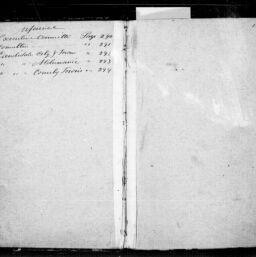 reference
Executive Committee Page 290
Committee " " 291
Candidates City & Town " 292
" " Aldermanic " 293
" " County Towns " 294